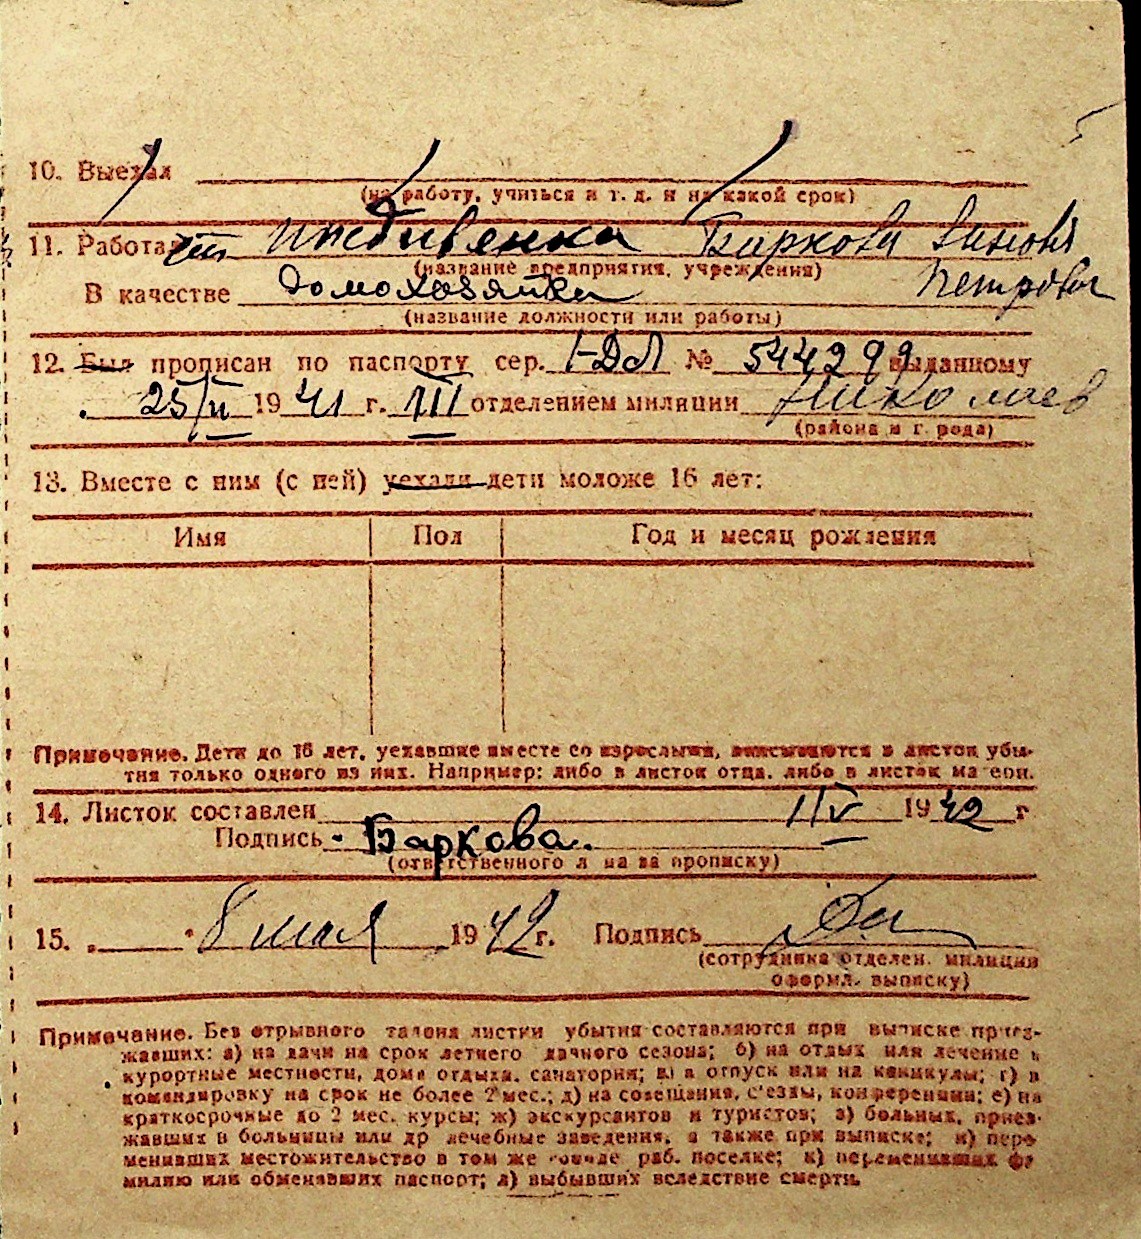 10. Выехал
(на работу, учиться и т. д. и на какой срок)
11. Работает иждивенка Баркова Зиновия
(название предприятия, учреждения) Петровича
В качестве домохозяйка
(название должности или работы)
12. Был прописан по паспорту сер. I-ДЛ № 544299 выданному
25/VI 1941 г. III отделением милиции Николаев
(района и города)
13. Вместе с ним (с ней) уехали дети моложе 16 лет:
Имя Пол Год и месяц рождения
Примечание. Дети до 16 лет, уехавшие вместе со взрослыми, вписываются в листок убы-
тия только одного из них. Например: либо в листок отца, либо в листок матери.
14. Листок составлен 1/V 1942 г
Подпись Баркова.
(ответственного лица за прописку)
15. 8 мая 1942 г. Подпись
(сотрудника отделен. милиции
оформл. выписку)
Примечание. Без отрывного талона листки убытия составляются при выписке приез-
жавших: а) на дачи на срок летнего дачного сезона; б) на отдых или лечение в
курортные местности, дома отдыха, санатория; в) в отпуск или на каникулы; г) в
командировку на срок не более 2 мес.; д) на совещания, съезды, конференции; е) на
краткосрочные до 2 мес. курсы; ж) экскурсантов и туристов; з) больных, приез-
жавших в больницы или др лечебные заведения, а также при выписке; и) пере
менивших местожительство в том же городе раб. поселке; к) переменивших фа
милию или обменявших паспорт; л) выбывших вследствие смерти.